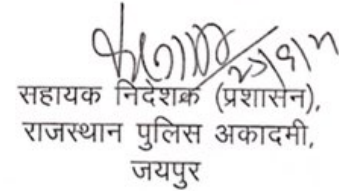 सहायक निदेशक (प्रशासन),
राजस्थान पुलिस अकादमी,
जयपुर